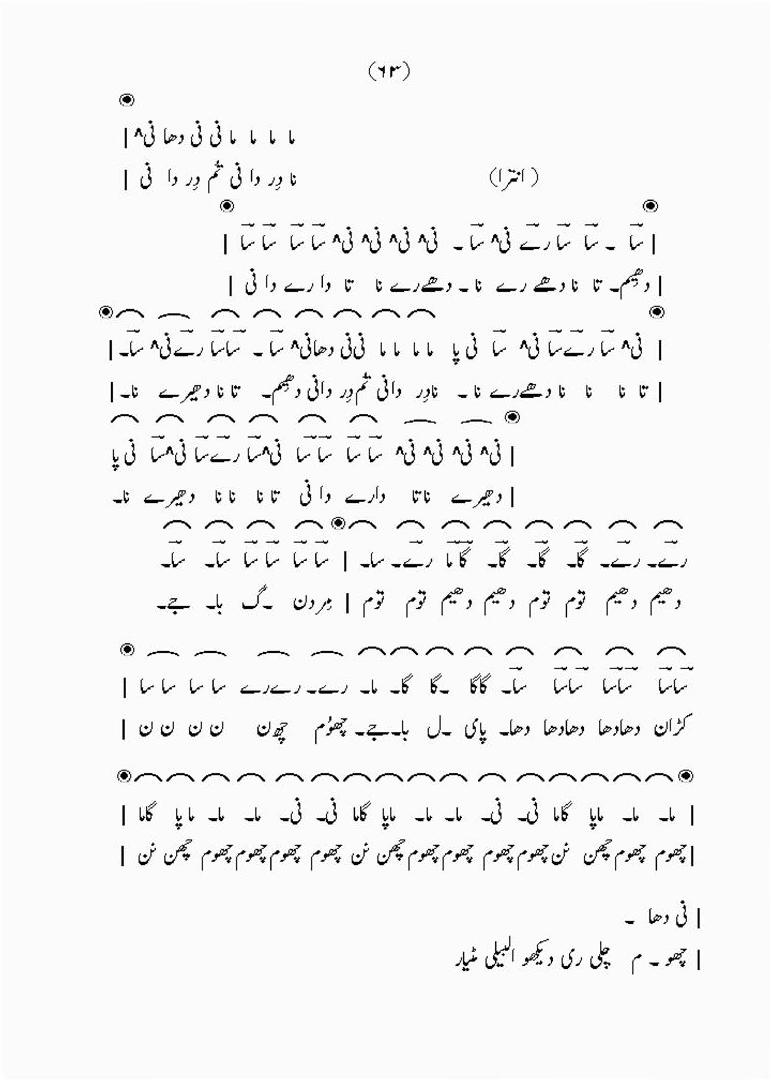 (۶۳)
ما ما ما ما نی نی دھا نی^ |
نا وِر وا نی تُم وِر وا نی |
(انترا)
| سا ۔ سا سا رے نی^ سا ۔ نی^ نی^ نی^ نی^ سا سا سا سا |
| دھیم۔ تا نا دھے رے نا ۔ دھےرے نا تا دا رے دا نی |
| نی^ سا رےسا نی^ سا نی پا ما ما ما ما نی نی دھانی^ سا ۔ ساسا رےنی^ سا۔ |
| تا نا نا نا دھےرے نا ۔ ناوِر وانی تُم وِر وانی دھیم۔ تا نا دھیرے نا۔ |
| نی^ نی^ نی^ نی^ سا سا سا سا نی^سا رےسا سانی^ سا نی پا
| دھیرے ناتا دارے دا نی تا نا نا نا دھیرے نا۔
رے۔ رے۔ گا۔ گا۔ گا۔ گا ما رے۔ سا۔ | سا سا سا سا سا۔ سا۔
دھیم دھیم توم توم دھیم دھیم توم توم | مِر دن ۔گ با۔ جے۔
ساسا ساسا ساسا سا۔ گاگا ۔گا گا۔ ما۔ رے۔ رےرے سا سا سا سا |
کڑان دھادھا دھادھا دھا۔ پای ۔ل با۔جے۔ چھوُم چھن ن ن ن ن |
| ما۔ ما۔ ماپا گاما نی۔ نی۔ ما۔ ما۔ ماپا گاما نی۔ نی۔ ما۔ ما۔ ما پا گاما |
| چھوم چھوم چھن نن چھوم چھوم چھوم چھوم چھن نن چھوم چھوم چھوم چھوم چھن نن |
| نی دھا ۔
| چھو ۔ م چلی ری دیکھو البیلی مٹیار